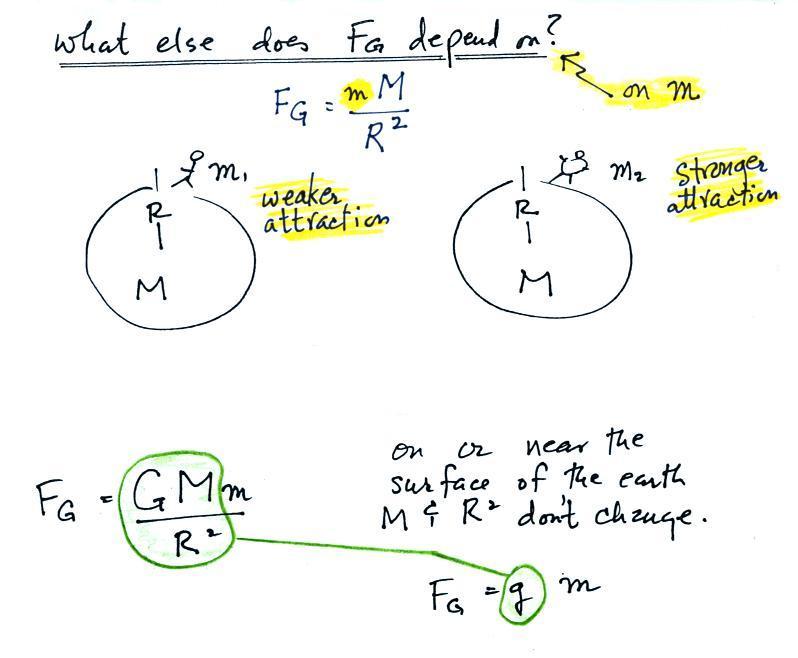 what else does FG depend on?
FG = m M / R²
on m
m₁
weaker
attraction
R
M
m₂
stronger
attraction
R
M
FG = GMm / R²
on or near the
surface of the earth
M & R² don't change.
FG = g m